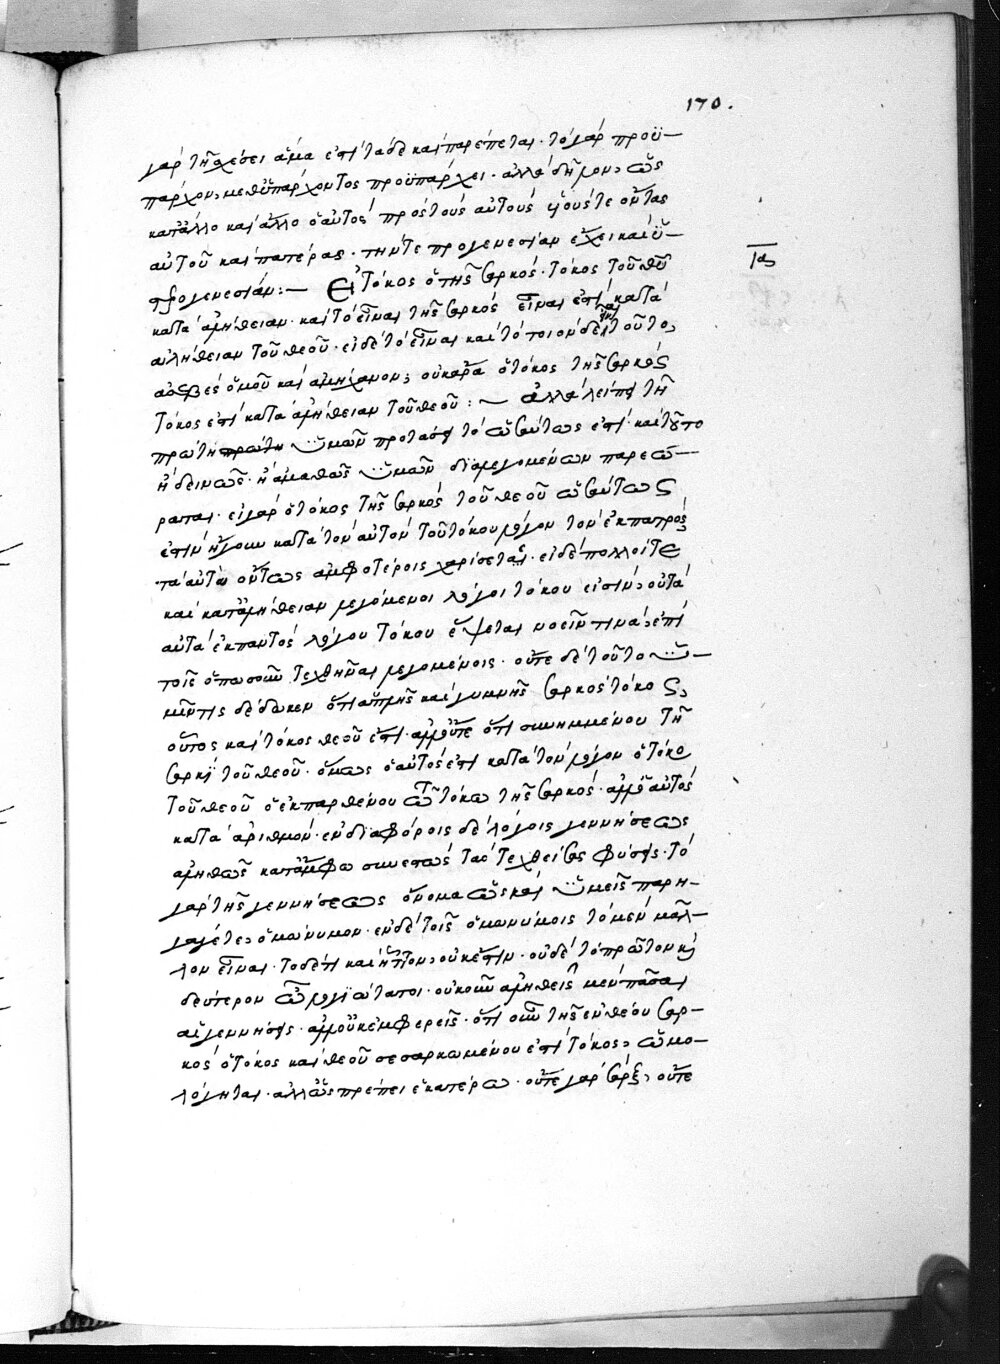 170.
γὰρ τῇ σχέσει ἅμα ἐστὶ τάδε καὶ παρέπεται· τὸ γὰρ προϋ-
πάρχον, μεθυπάρχοντος προϋπάρχει· ἀλλὰ δῆλον, ὡς
κατ' ἄλλο καὶ ἄλλο ὁ αὐτὸς πρὸς τοὺς αὐτοὺς υἱούς τε ὄντας
αὐτοῦ καὶ πατέρας· τήν τε προγενεσίαν ἔχει καὶ ὑ-
στερογενεσίαν :— Εἰ τόκος ὁ τῆς σαρκός· τόκος τοῦ θῦ
ις
κατὰ ἀλήθειαν· καὶ τὸ εἶναι τῆς σαρκὸς εἶναι ἐστὶ κατὰ
ἀλήθειαν τοῦ θεοῦ· εἰ δὲ τὸ εἶναι καὶ τὸ ποιὸν δὲ τοῦτο,
ἀσεβὲς ὁμοῦ καὶ ἀμήχανον; οὐκ ἄρα ὁ τόκος τῆς σαρκὸς
τόκος ἐστὶ κατὰ ἀλήθειαν τοῦ θεοῦ :— ἀλλὰ λείπει τῇ
πρώτῃ πρώτη ὑμῶν προτάσει τὸ ὡσαύτως ἐστί· καὶ τοῦτο
ἢ δεινῶς· ἢ ἀμαθῶς ὑμῶν διαλεγομένων παρεώ-
ραται· εἰ γὰρ ὁ τόκος τῆς σαρκὸς τοῦ θεοῦ ὡσαύτως
ἐστὶν ἤγουν κατὰ τὸν αὐτὸν τοῦ τόκου λόγον τὸν ἐκ πατρὸς
τὰ αὐτὰ ὄντως ἀμφοτέροις χαρίσεται· εἰ δὲ πολλοί τε
καὶ κατ' ἀλήθειαν λεγόμενοι λόγοι τόκου εἰσὶν, οὐ τὰ
αὐτὰ ἐκ παντὸς λόγου τόκου ἕψεται νοεῖν τινὰ, ἐπὶ
τοῖς ὁπωσοῦν τεχθῆναι λεγομένοις· οὔτε δὲ τοῦτο ὑ-
μῖν τις δέδωκεν ὅτι ἁπλῆς καὶ γυμνῆς σαρκὸς τόκος,
οὗτος καὶ τόκος θεοῦ ἐστί· ἀλλ' οὔτε ὅτι συνημμένου τῇ
σαρκὶ τοῦ θεοῦ· ὅμως ὁ αὐτός ἐστι κατὰ τὸν λόγον ὁ τόκος
τοῦ θεοῦ ὁ ἐκ παρθένου τῷ τόκῳ τῆς σαρκός· ἀλλ' ὁ αὐτὸς
κατὰ ἀριθμόν· ἐν διαφόροις δὲ λόγοις γεννήσεως
ἀληθῶς κατ' ἄμφω συνεστὼς τὰς τεχθείσας φύσεις· τὸ
γὰρ τῆς γεννήσεως ὄνομα ὡς καὶ ὑμεῖς παρη-
γάγετε, ὁμώνυμον· ἐν δὲ τοῖς ὁμωνύμοις τὸ μὲν μᾶλ-
λον εἶναι· τὸ δέ τι καὶ ἧττον, οὐκ ἔστιν· οὐδὲ τὸ πρῶτον καὶ
δεύτερον ὦ λογιώτατοι· οὐκοῦν ἀληθεῖς μὲν πᾶσαι
αἱ γεννήσεις· ἀλλ' οὐκ ἐμφερεῖς· ὅτι οὖν τῆς ἐν θεῷ σαρ-
κὸς ὁ τόκος καὶ θεοῦ σεσαρκωμένου ἐστὶ τόκος, ὡμο-
λόγηται· ἀλλ' ὡς πρέπει ἑκατέρῳ· οὔτε γὰρ σὰρξ, οὔτε